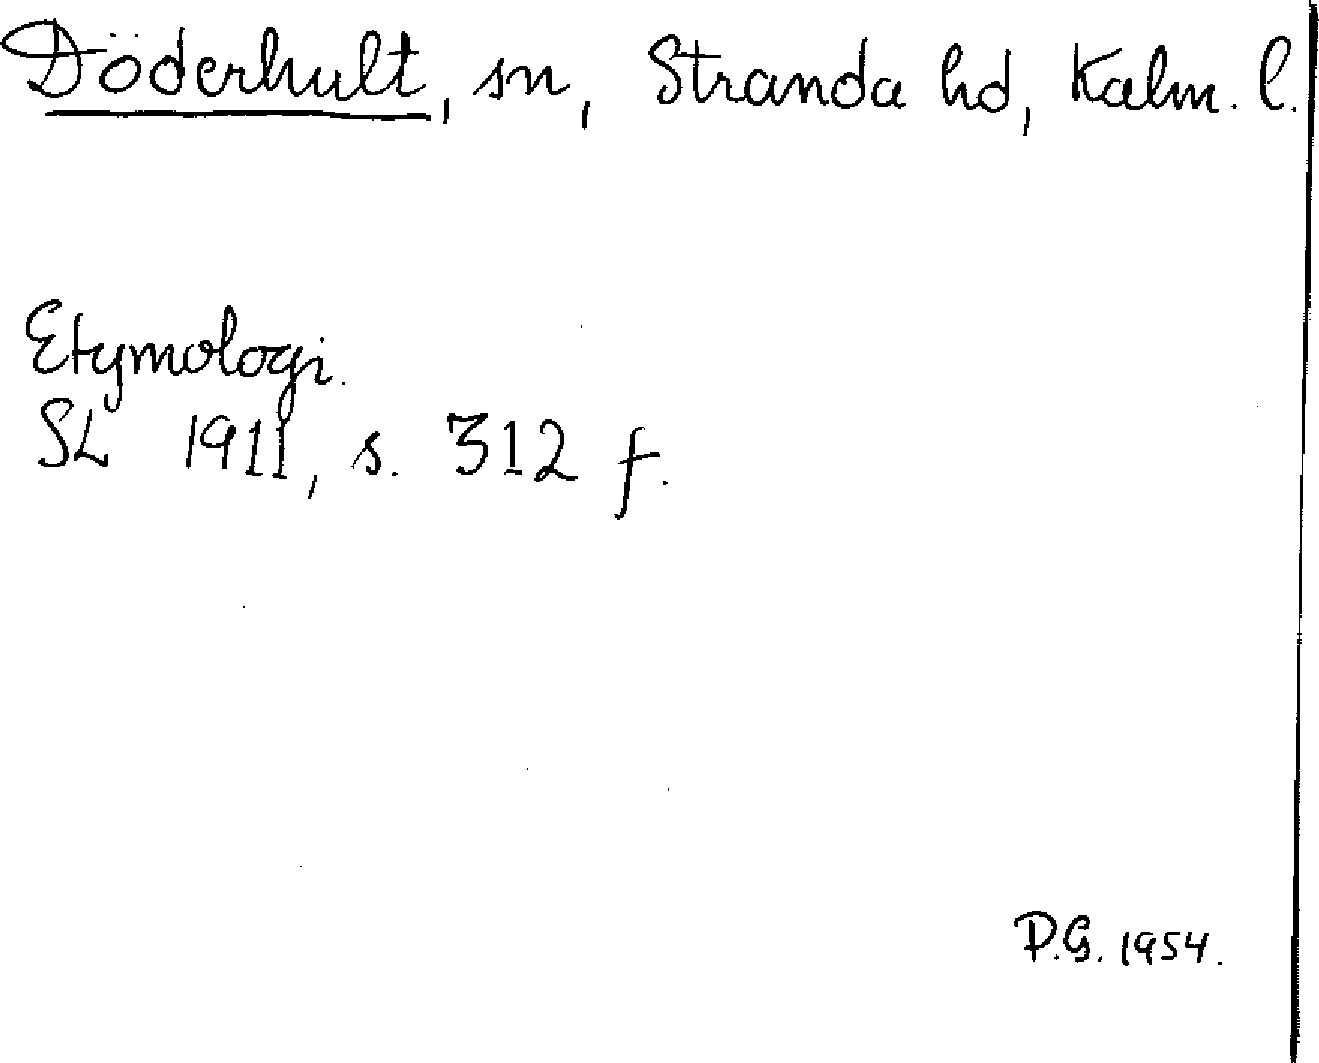 Döderhult, sn, Stranda hd, Kalm. l.
Etymologi.
SL 1911, s. 312 f.
P.G. 1954.